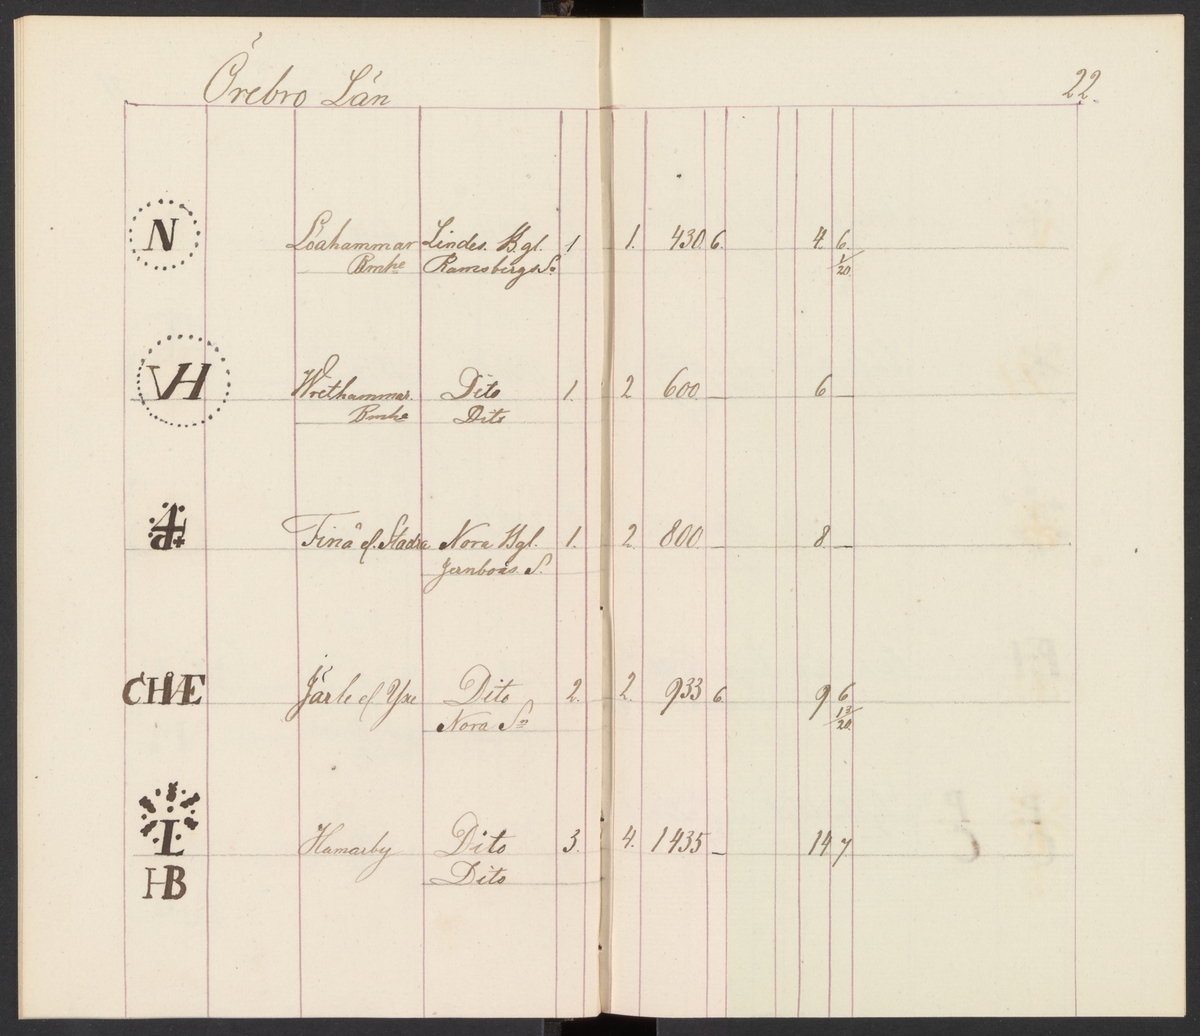 Örebro Län 22.
N Löahammar Lindes. Bgl. 1 1. 430. 6. 4. 6.
Bruke Ramsbergs Sn 1/20.
VH Wrethammar. Dito 1. 2 600. — 6 —
Bruke Dito
Finå &. Stadra Nora Bgl. 1. 2. 800. — 8. —
Jernboås. S.
CHÆ Järle & Yxe Dito 2. 2. 933 6. 9 6
Nora Sn 13/20.
L Hamarby Dito 3. 4. 1435 — 14 7
HB Dito